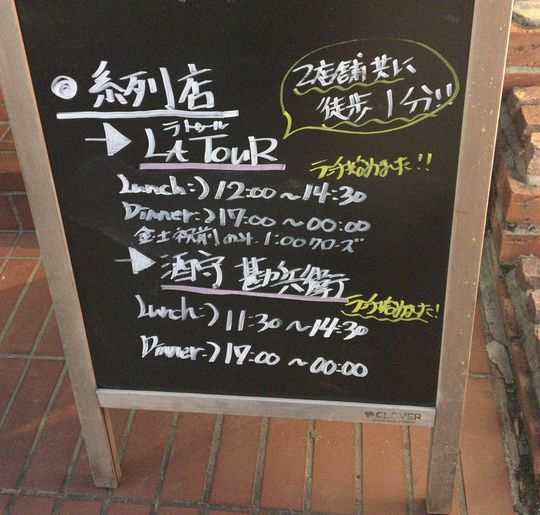 2店舗共に
徒歩1分!!
◎系列店
ラトゥール
→ LA TOUR
ランチ始めました!!
Lunch:) 12:00～14:30
Dinner:) 17:00～00:00
金土祝前のみ 1:00クローズ
→ 酒守 勘兵衛
ランチ始めました!
Lunch:) 11:30～14:30
Dinner:) 17:00～00:00
CLOVER